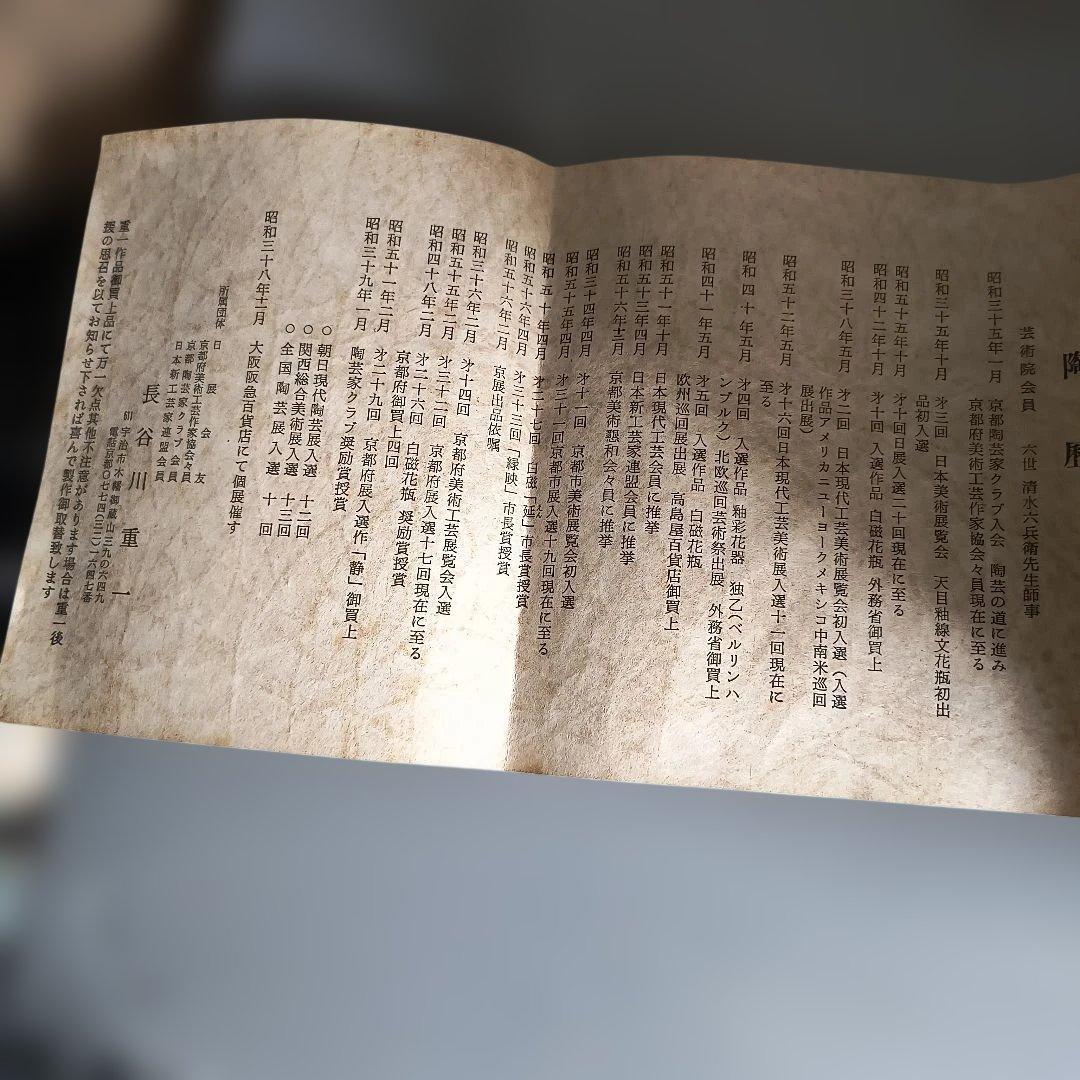 陶歴
芸術院会員 六世 清水六兵衛先生師事
昭和三十五年一月 京都陶芸家クラブ入会 陶芸の道に進み
京都府美術工芸作家協会々員現在に至る
昭和三十五年十月 才三回 日本美術展覧会 天目釉線文花瓶初出
品初入選
昭和五十五年十月 才十回日展入選二十回現在に至る
昭和四十二年十月 才十回 入選作品 白磁花瓶 外務省御買上
昭和三十八年五月 才二回 日本現代工芸美術展覧会初入選(入選
作品アメリカニューヨークメキシコ中南米巡回
展出展)
昭和五十二年五月 才十六回日本現代工芸美術展入選十一回現在に
至る
昭和四十年五月 才四回 入選作品 釉彩花器 独乙(ベルリンハ
ンブルク)北欧巡回芸術祭出展 外務省御買上
昭和四十一年五月 才五回 入選作品 白磁花瓶
欧州巡回展出展 高島屋百貨店御買上
昭和五十一年十月 日本現代工芸会員に推挙
昭和五十三年四月 日本新工芸家連盟会員に推挙
昭和五十六年十二月 京都美術懇和会々員に推挙
昭和三十四年四月 才十一回 京都市美術展覧会初入選
昭和五十五年四月 才三十一回京都市展入選十九回現在に至る
昭和五十年四月 才二十七回 白磁「延」市長賞授賞
昭和五十六年四月 才三十三回「緑映」市長賞授賞
昭和五十六年二月 京展出品依嘱
昭和三十六年二月 才十四回 京都府美術工芸展覧会入選
昭和五十五年二月 才三十二回 京都府展入選十七回現在に至る
昭和四十八年二月 才二十六回 白磁花瓶 奨励賞授賞
京都府御買上四回
昭和五十一年二月 才二十九回 京都府展入選作「静」御買上
昭和三十九年一月 陶芸家クラブ奨励賞授賞
○ 朝日現代陶芸展入選 十二回
○ 関西総合美術展入選 十三回
○ 全国陶芸展入選 十回
昭和三十八年十二月 大阪阪急百貨店にて個展催す
所属団体 日展会友
京都府美術工芸作家協会々員
京都陶芸家クラブ会員
日本新工芸家連盟会員
長谷川重一
611 宇治市木幡御蔵山三九の六四九
電話京都〇七七四(三二)一六四七番
重一作品御買上品にて万一欠点其他不注意があります場合は重一後
援の思召を以てお知らせ下されば喜んで製作御取替致します